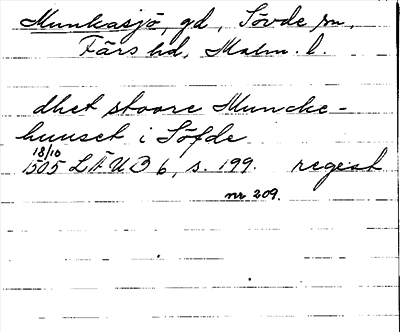 Munkasjö, gd, Sövde sn,
Färs hd, Malm. l.
dhet stoore Muncke-
huuset i Söfde
18/10
1505 LÄUB 6, s. 199. regest
nr 209.